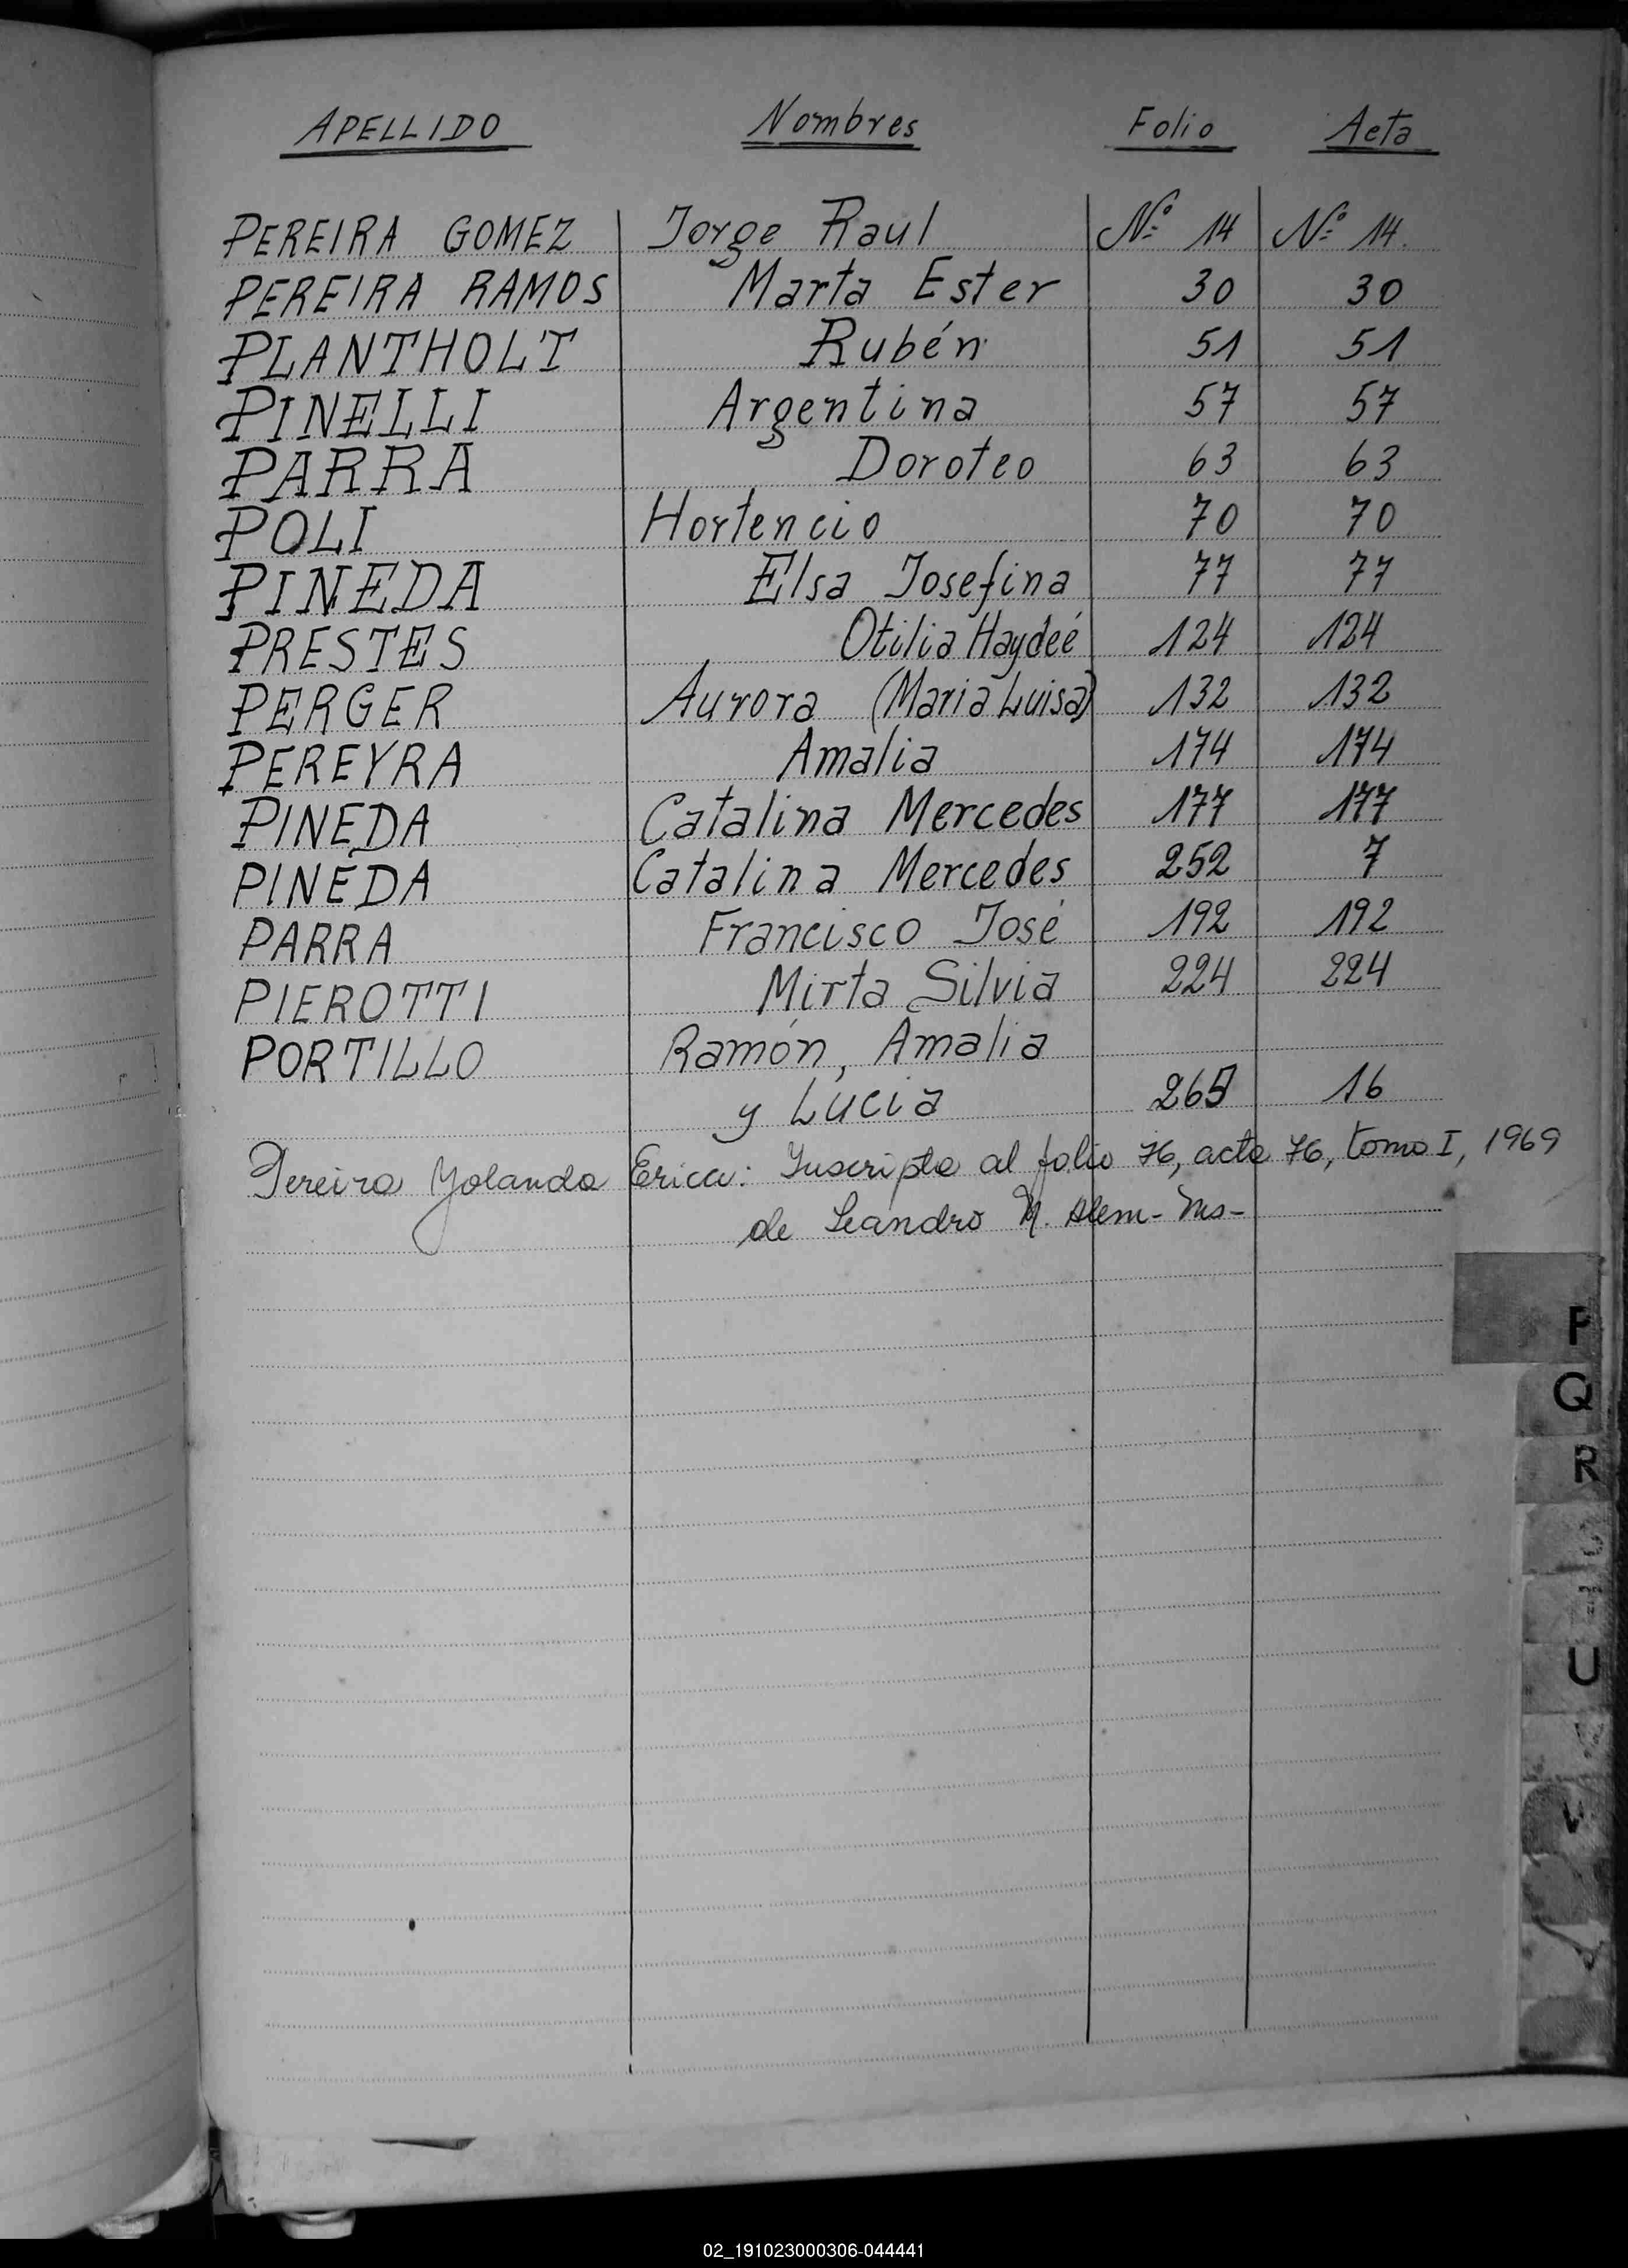 APELLIDO Nombres Folio Acta
PEREIRA GOMEZ Jorge Raul Nº 14 Nº 14.
PEREIRA RAMOS Marta Ester 30 30
PLANTHOLT Rubén 51 51
PINELLI Argentina 57 57
PARRA Doroteo 63 63
POLI Hortencio 70 70
PINEDA Elsa Josefina 77 77
PRESTES Otilia Haydeé 124 124
PERGER Aurora (Maria Luisa) 132 132
PEREYRA Amalia 174 174
PINEDA Catalina Mercedes 177 177
PINEDA Catalina Mercedes 252 7
PARRA Francisco José 192 192
PIEROTTI Mirta Silvia 224 224
PORTILLO Ramón, Amalia
y Lucia 265 16
Pereira Yolanda Erica: Inscripta al folio 76, acta 76, tomo I, 1969
de Leandro N. Alem - Ms-
P
Q
R
S
T
U
V
W
02_191023000306-044441